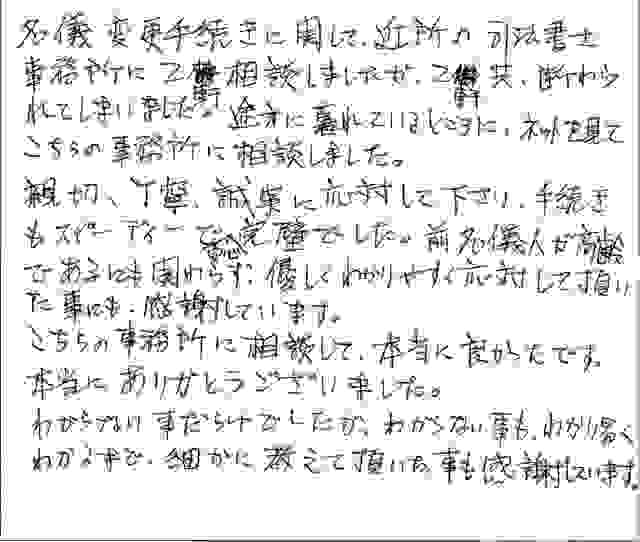 名儀変更手続きに関して、近所の司法書士
事務所に2軒相談しましたが、2軒共、断わら
れてしまいました。途方に暮れているところに、ネットを見て
こちらの事務所に相談しました。
親切、丁寧、誠実に応対して下さり、手続き
もスピーディーで安心完璧でした。前名儀人が高齢
であるにも関わらず、優しくわかりやすく応対して頂い
た事にも、感謝しています。
こちらの事務所に相談して、本当に良かったです。
本当にありがとうございました。
わからない事だらけでしたが、わからない事も、わかり易く
わかるまで、細かに教えて頂いた事も感謝しています。